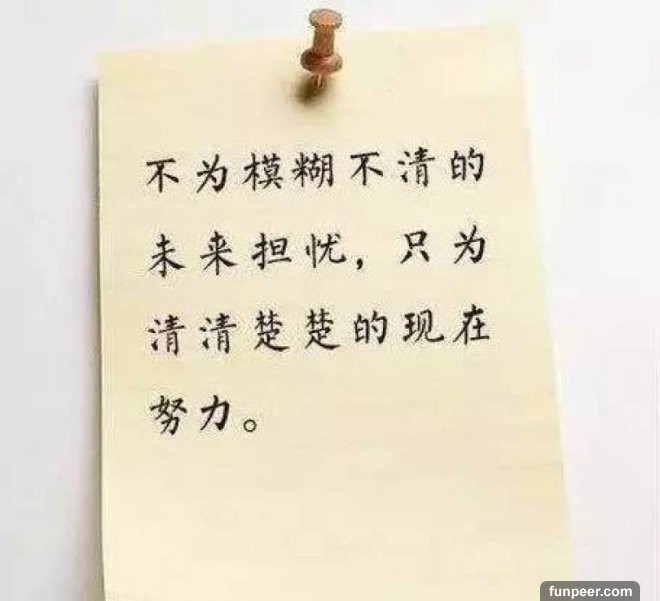 不为模糊不清的
未来担忧，只为
清清楚楚的现在
努力。
funpeer.com